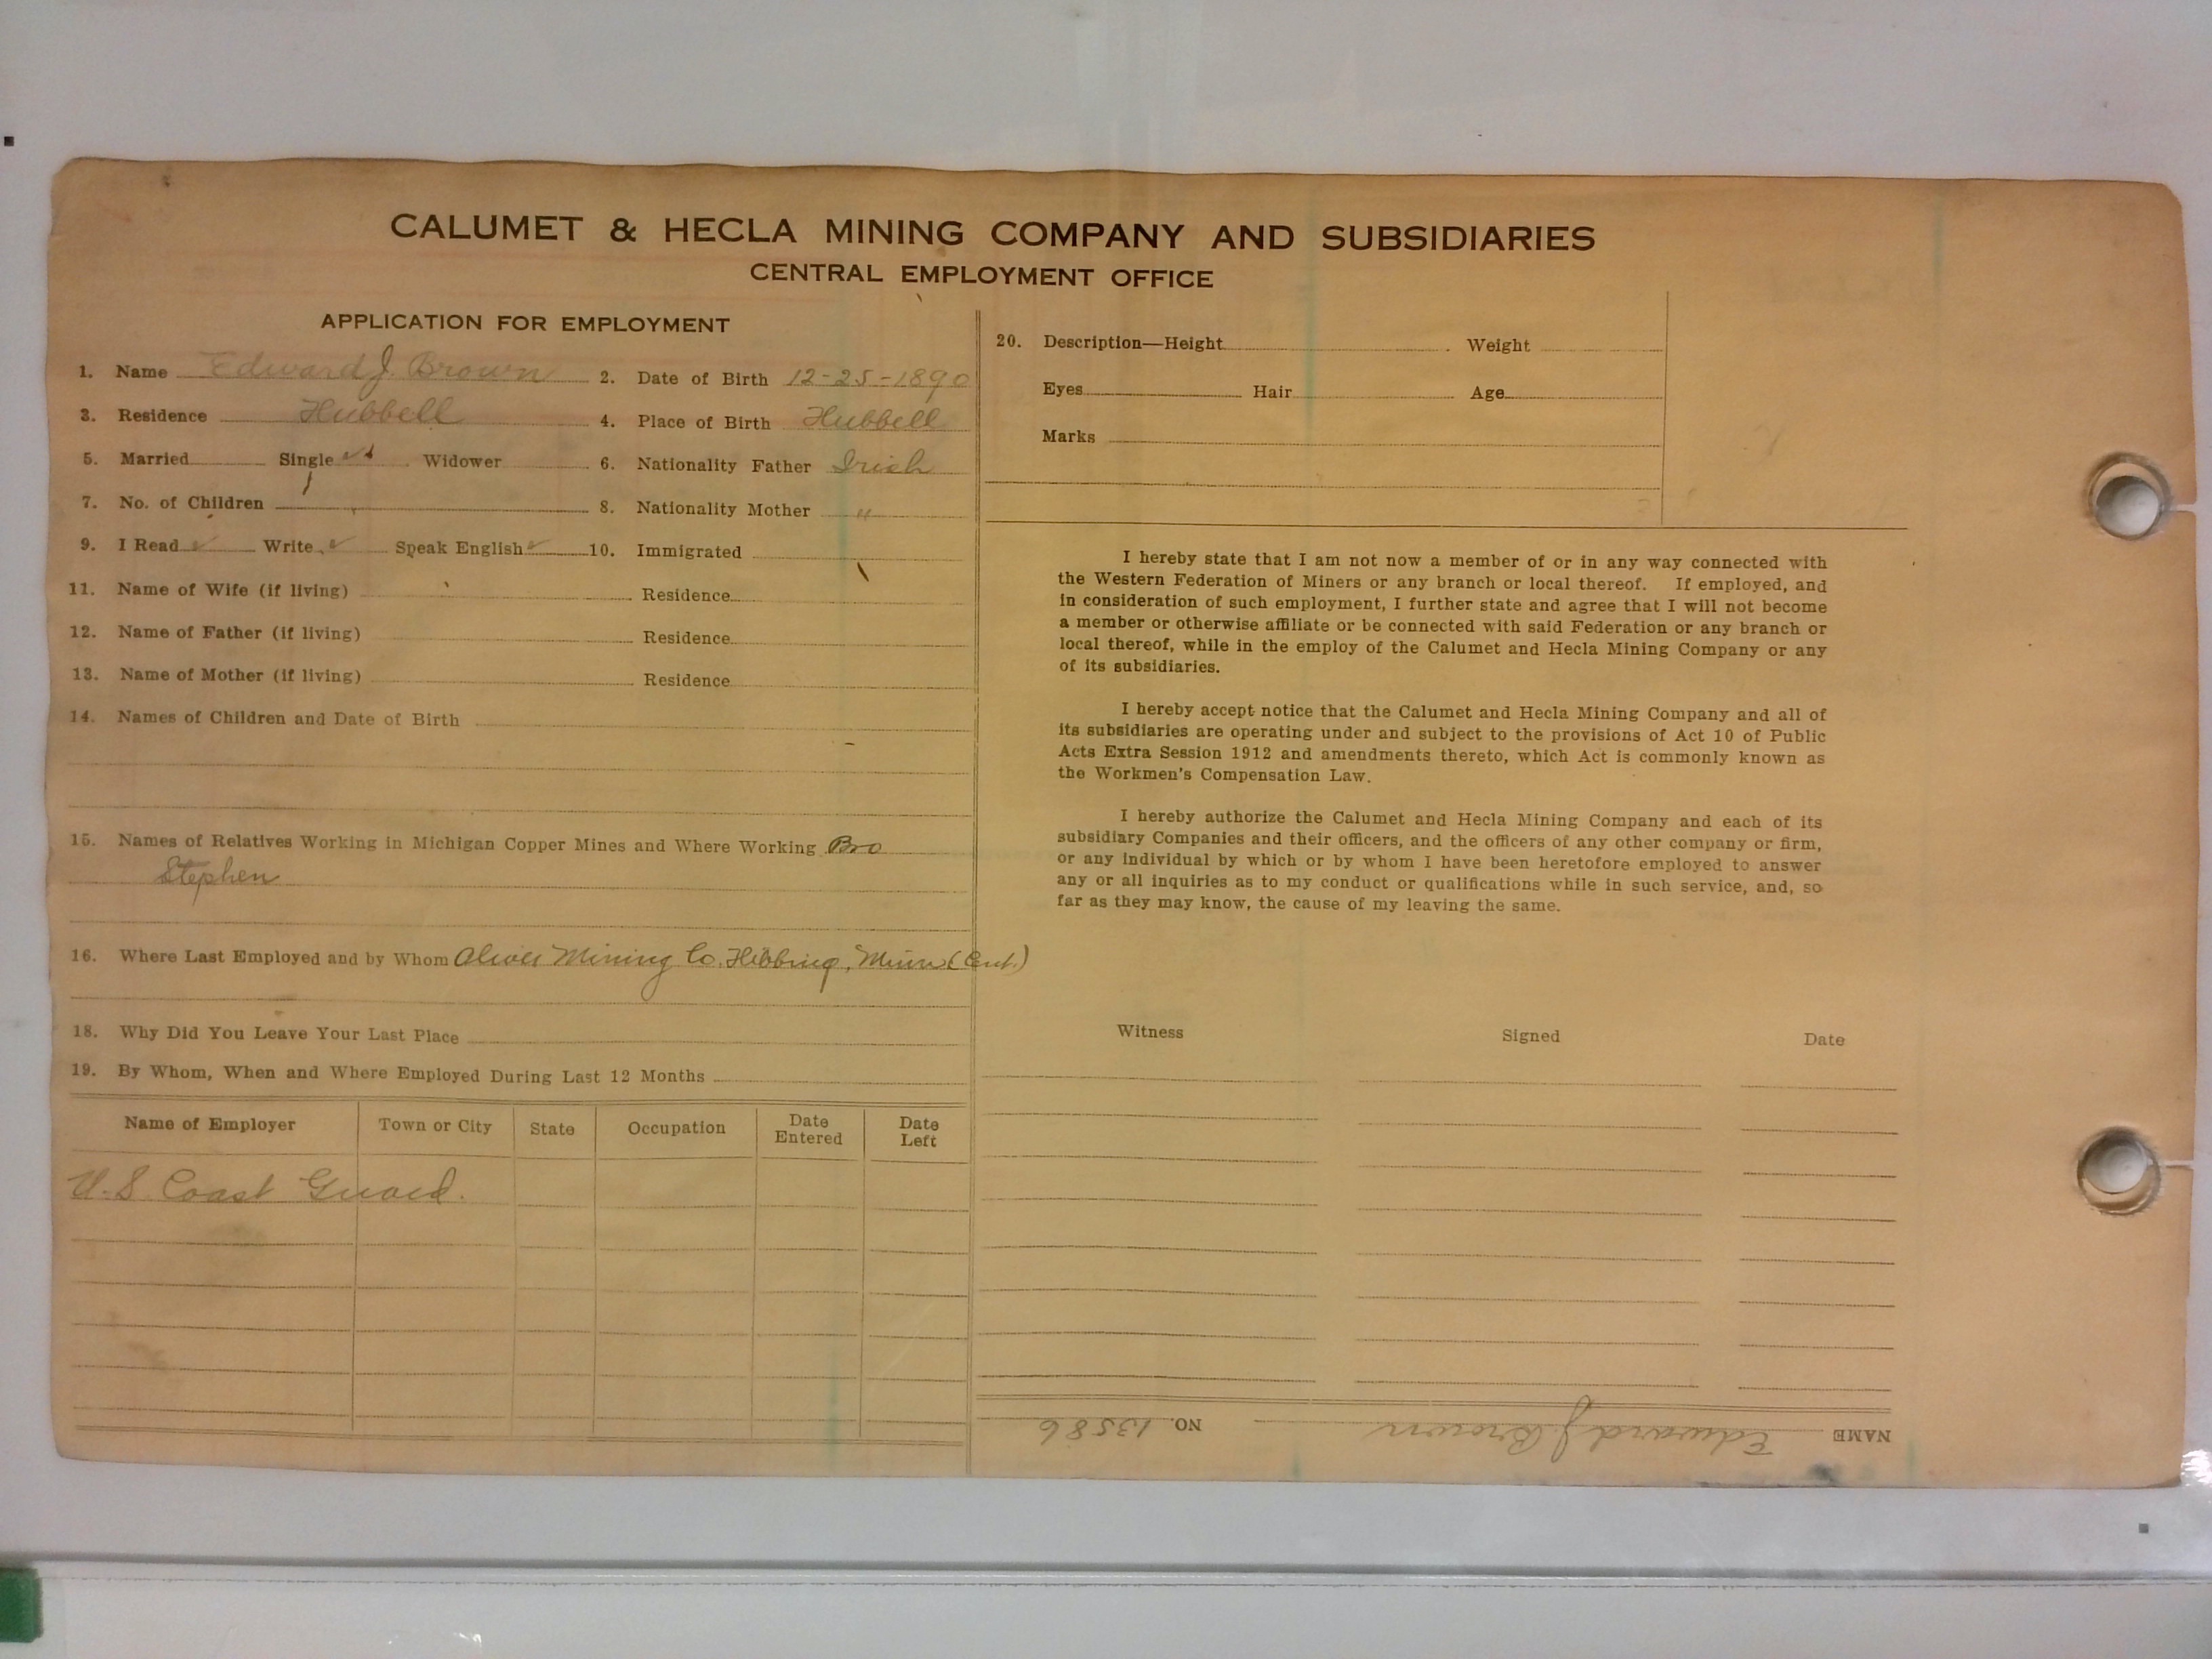 CALUMET & HECLA MINING COMPANY AND SUBSIDIARIES
CENTRAL EMPLOYMENT OFFICE
APPLICATION FOR EMPLOYMENT
1. Name Edward J. Brown 2. Date of Birth 12-25-1890
3. Residence Hubbell 4. Place of Birth Hubbell
5. Married Single Widower 6. Nationality Father Irish
7. No. of Children 8. Nationality Mother "
9. I Read ✓ Write ✓ Speak English ✓ 10. Immigrated
11. Name of Wife (if living) Residence
12. Name of Father (if living) Residence
13. Name of Mother (if living) Residence
14. Names of Children and Date of Birth
15. Names of Relatives Working in Michigan Copper Mines and Where Working Bro
Stephen
16. Where Last Employed and by Whom Oliver Mining Co. Hibbing, Minn
18. Why Did You Leave Your Last Place
19. By Whom, When and Where Employed During Last 12 Months
Name of Employer Town or City State Occupation Date Entered Date Left
U.S Coast Guard.
20. Description—Height Weight
Eyes Hair Age
Marks
I hereby state that I am not now a member of or in any way connected with
the Western Federation of Miners or any branch or local thereof. If employed, and
in consideration of such employment, I further state and agree that I will not become
a member or otherwise affiliate or be connected with said Federation or any branch or
local thereof, while in the employ of the Calumet and Hecla Mining Company or any
of its subsidiaries.
I hereby accept notice that the Calumet and Hecla Mining Company and all of
its subsidiaries are operating under and subject to the provisions of Act 10 of Public
Acts Extra Session 1912 and amendments thereto, which Act is commonly known as
the Workmen's Compensation Law.
I hereby authorize the Calumet and Hecla Mining Company and each of its
subsidiary Companies and their officers, and the officers of any other company or firm,
or any individual by which or by whom I have been heretofore employed to answer
any or all inquiries as to my conduct or qualifications while in such service, and, so
far as they may know, the cause of my leaving the same.
Witness Signed Date
NAME Edward J. Brown NO. 13586